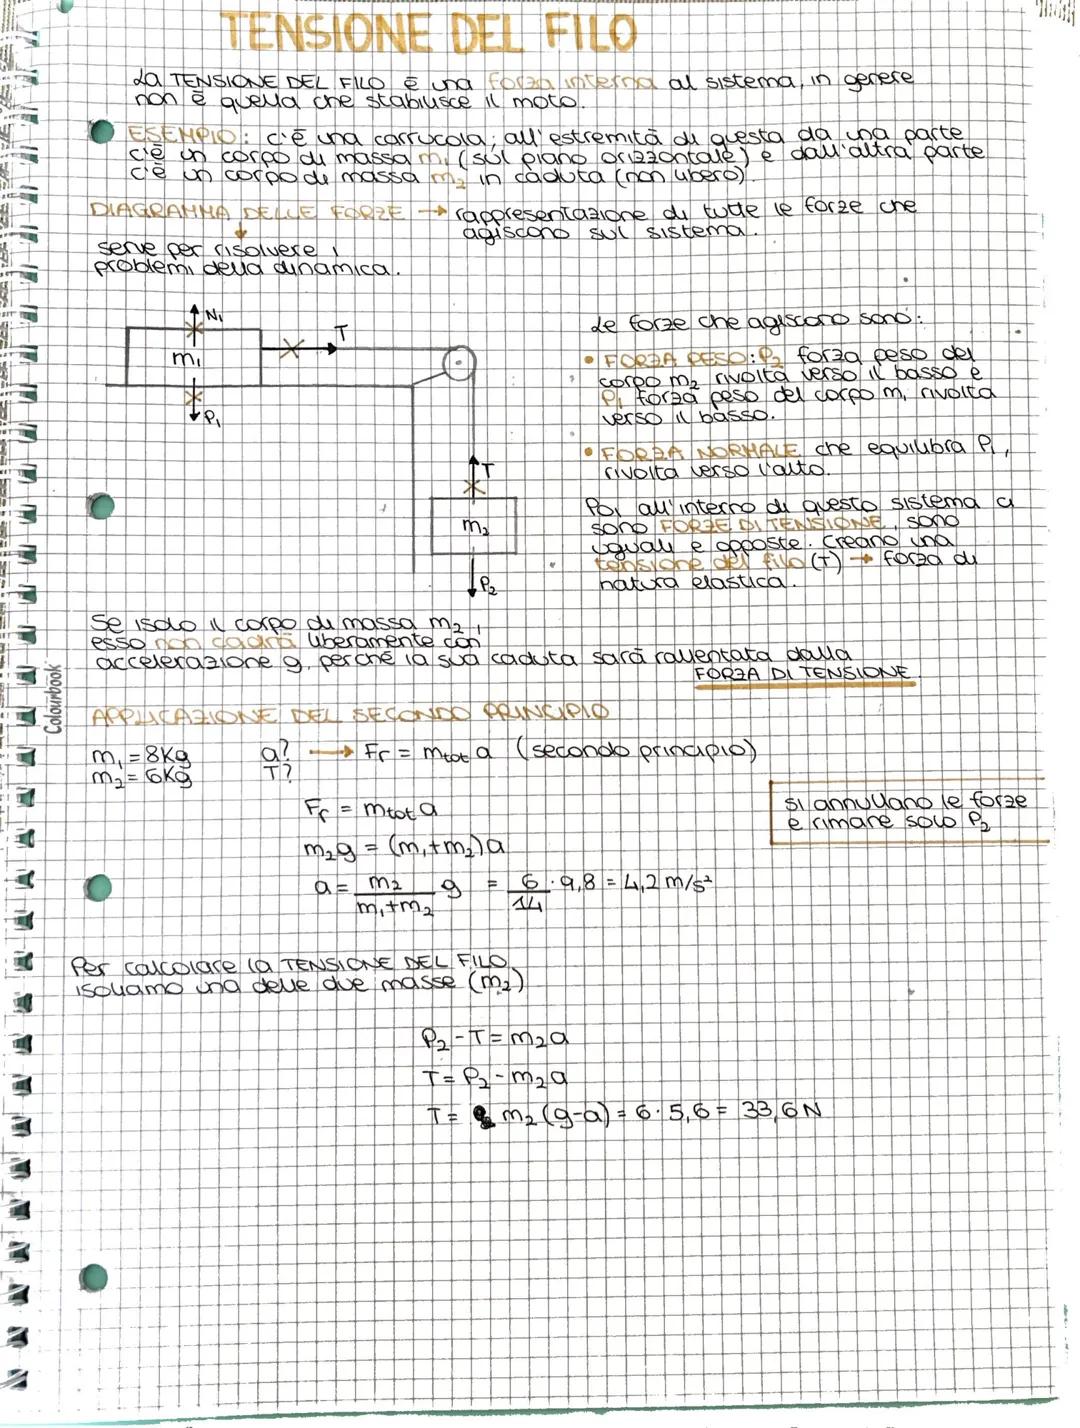 TENSIONE DEL FILO
La TENSIONE DEL FILO è una forza interna al sistema, in genere
non è quella che stabilisce il moto.
ESEMPIO: c'è una carrucola; all'estremità di questa da una parte
c'è un corpo di massa m₁ (sul piano orizzontale) e dall'altra parte
c'è un corpo di massa m₂ in caduta (non libero).
DIAGRAMMA DELLE FORZE → rappresentazione di tutte le forze che
agiscono sul sistema.
↓
serve per risolvere i
problemi della dinamica.
N₁
T
m₁
P₁
T
m₂
P₂
Le forze che agiscono sono:
• FORZA PESO: P₂ forza peso del
corpo m₂ rivolta verso il basso e
P₁ forza peso del corpo m₁ rivolta
verso il basso.
• FORZA NORMALE che equilibra P₁,
rivolta verso l'alto.
Poi all'interno di questo sistema ci
sono FORZE DI TENSIONE, sono
uguali e opposte. Creano una
tensione del filo (T) → forza di
natura elastica.
Se isolo il corpo di massa m₂,
esso non cadrà liberamente con
accelerazione g, perché la sua caduta sarà rallentata dalla
FORZA DI TENSIONE.
Colourbook
APPLICAZIONE DEL SECONDO PRINCIPIO
m₁ = 8Kg a? → Fr = mtot a (secondo principio)
m₂ = 6Kg T?
Fr = mtot a
m₂g = (m₁+m₂)a
a = m₂/m₁+m₂ g = 6/14 · 9,8 = 4,2 m/s²
si annullano le forze
e rimane solo P₂
Per calcolare la TENSIONE DEL FILO
isoliamo una delle due masse (m₂)
P₂ - T = m₂a
T = P₂ - m₂a
T = m₂(g-a) = 6·5,6 = 33,6 N